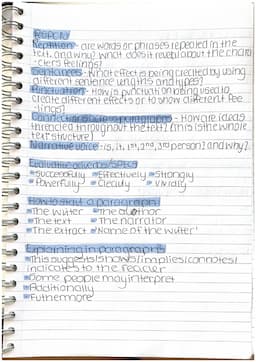 Repetition - are words or phrases repeated in the
text, and why? what does it reveal about the chara
-cters feelings?
Sentences - What effect is being created by using
different sentence lengths and types?
Punctuation - How is punctuation being used to
create different effects or to show different fee
-lings?
Connections across paragraphs - How are ideas
threaded throughout the text? (this is the whole
text structure)
Narrative voice - is it, 1st, 2nd, 3rd person? and why?
Evaluative adverbs/
Successfully Effectively Strongly
Powerfully Clearly Vividly
How to start a paragraph
The writer The author
The text The narrator
The extract 'Name of the writer'
Explaining in paragraphs
This suggests/shows/implies/connotes/
indicates to the reader
Some people may interpret
Additionally
Futhermore